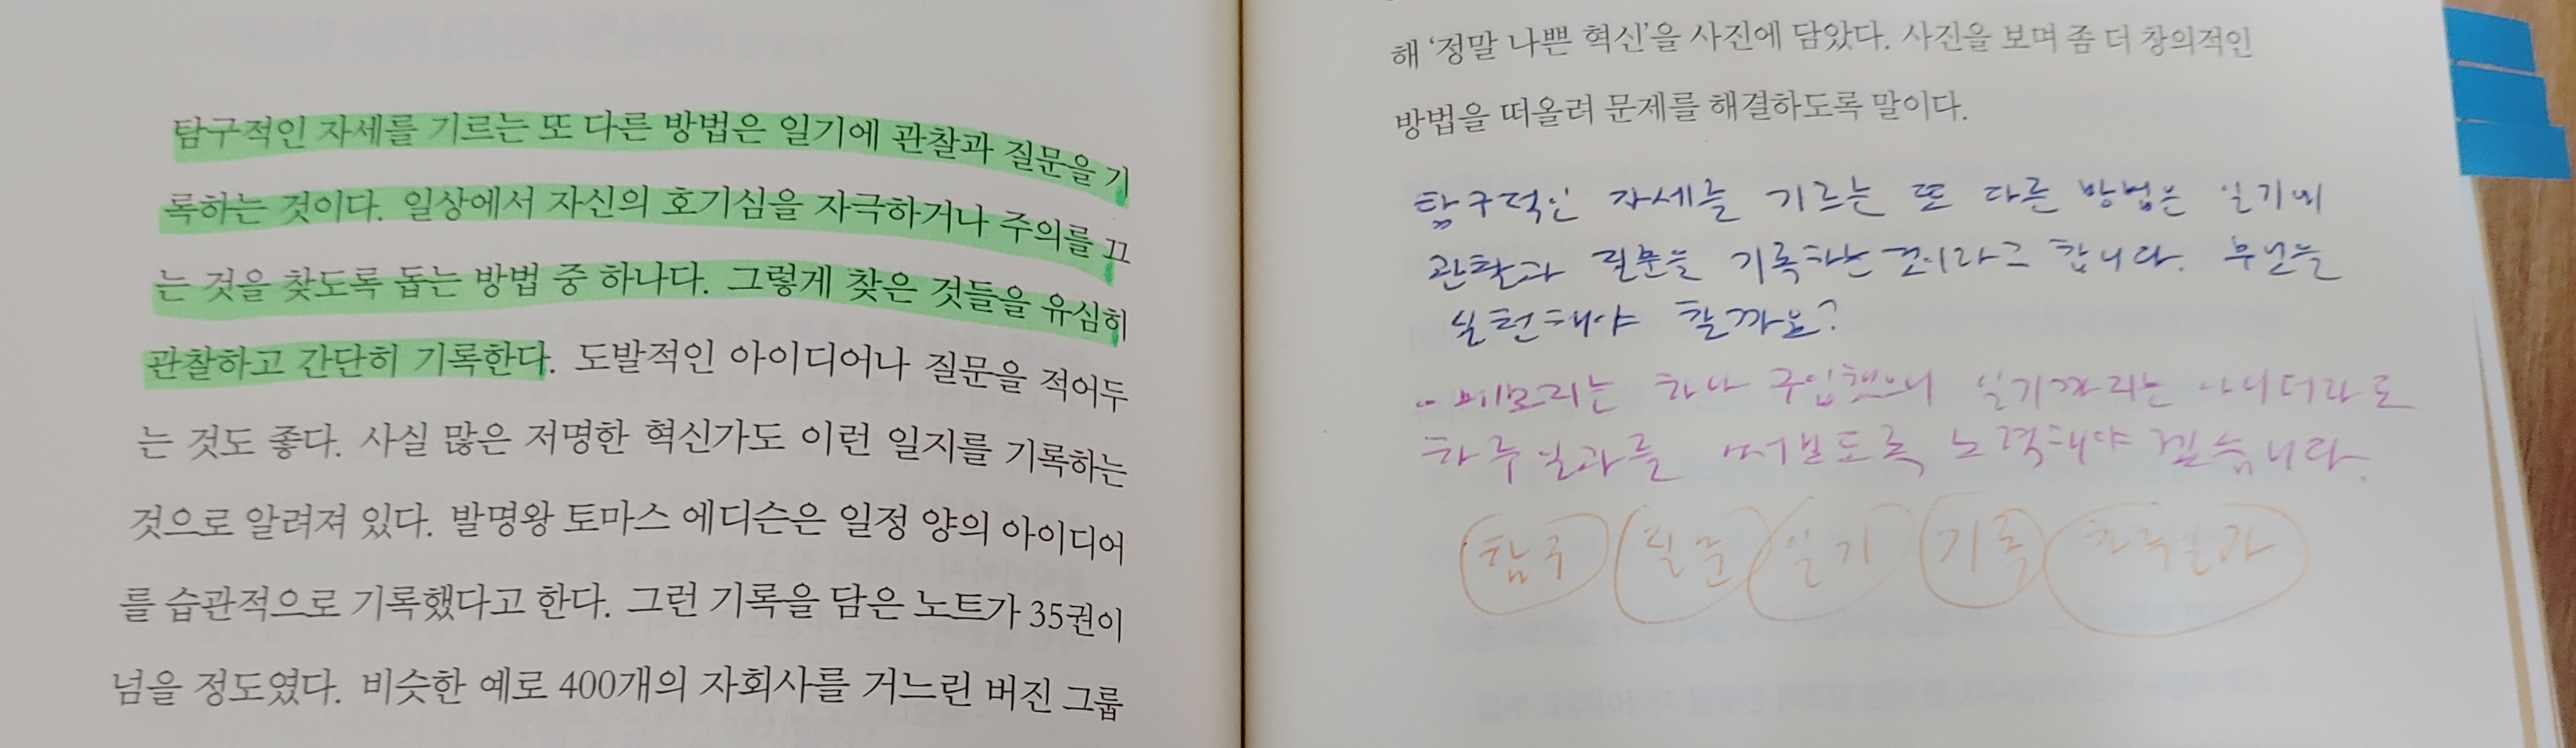 탐구적인 자세를 기르는 또 다른 방법은 일기에 관찰과 질문을 기
록하는 것이다. 일상에서 자신의 호기심을 자극하거나 주의를 끄
는 것을 찾도록 돕는 방법 중 하나다. 그렇게 찾은 것들을 유심히
관찰하고 간단히 기록한다. 도발적인 아이디어나 질문을 적어두
는 것도 좋다. 사실 많은 저명한 혁신가도 이런 일지를 기록하는
것으로 알려져 있다. 발명왕 토마스 에디슨은 일정 양의 아이디어
를 습관적으로 기록했다고 한다. 그런 기록을 담은 노트가 35권이
넘을 정도였다. 비슷한 예로 400개의 자회사를 거느린 버진 그룹
해 ‘정말 나쁜 혁신’을 사진에 담았다. 사진을 보며 좀 더 창의적인
방법을 떠올려 문제를 해결하도록 말이다.
탐구적인 자세를 기르는 또 다른 방법은 일기에
관찰과 질문을 기록하는 것이라고 합니다. 무엇을
실천해야 할까요?
하나 구입했으니 일기까지는 아니더라도
하루일과를 써보도록 노력해야 겠습니다.
탐구 질문 일기 기록 하루일과